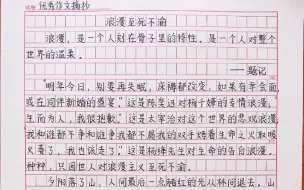 优秀作文摘抄
浪漫至死不渝
浪漫,是一个人刻在骨子里的特性,是一个人对整个
世界的温柔。
——题记
“明年今日,别要再失眠,床褥都改变,如果有幸会面,
或在同伴新婚的盛宴。”这是陈奕迅对杨千嬅的专情浪漫。
生而为人,我很抱歉。”这是太宰治对这个世界的悲观浪漫。
我和谁都不争和谁争我都不屑我的双手烤着生命之火取暖
火萎了,我也该走了”这是杨绛先生对生命的告白浪漫。
种种,只因世人对浪漫主义至死不渝。
夕阳落了山,人间最后一点酡红的光从林间退去,山